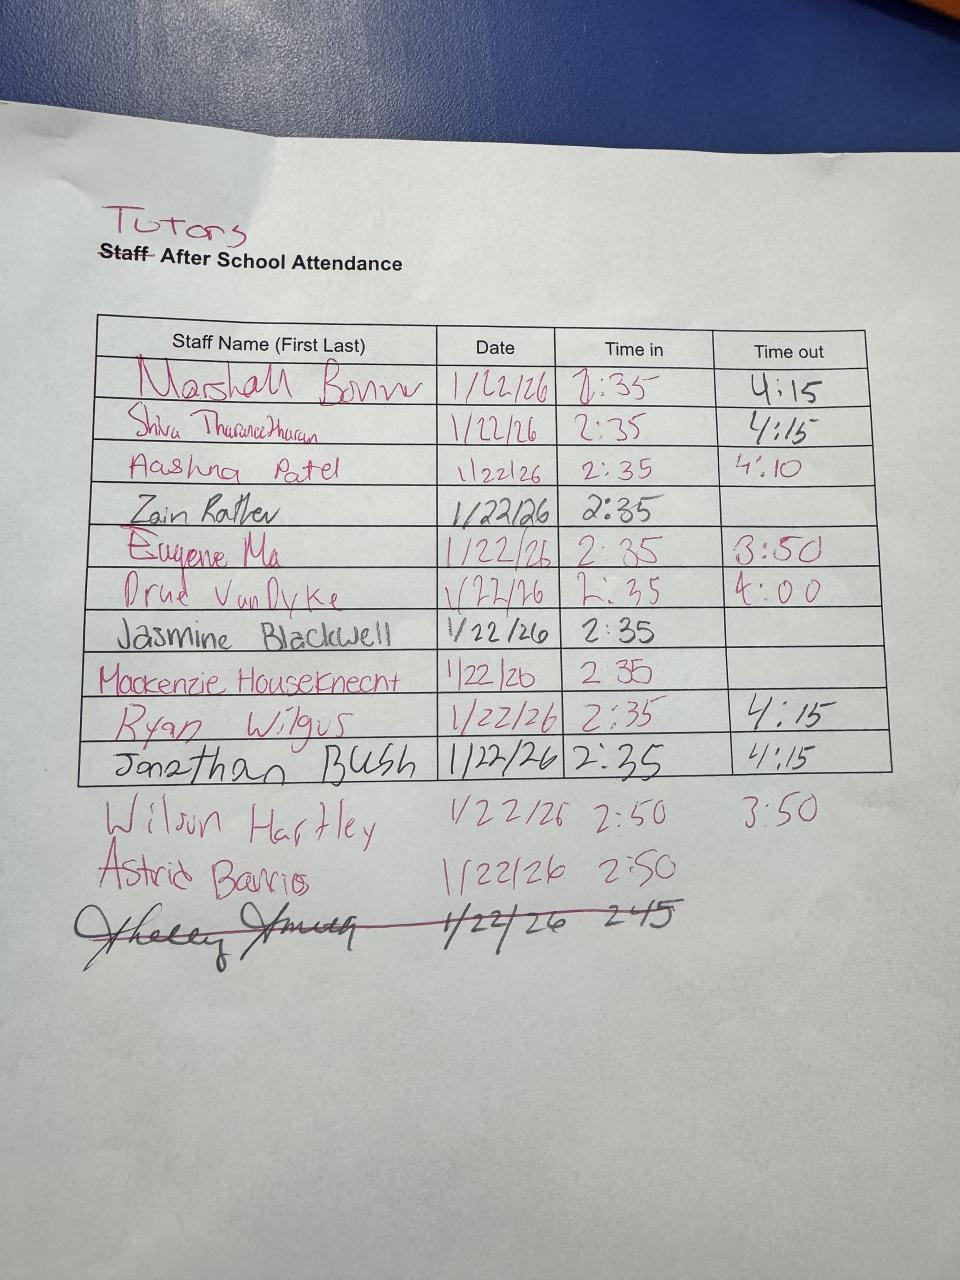 Tutors
Staff After School Attendance
Staff Name (First Last) Date Time in Time out
Marshall 1/22/26 2:35 4:15
Shiva 1/22/26 2:35 4:15
Aashna Patel 1/22/26 2:35 4:10
Zain Rather 1/22/26 2:35
Eugene Ma 1/22/26 2:35 3:50
Drue VanDyke 1/22/26 2:35 4:00
Jasmine Blackwell 1/22/26 2:35
Mackenzie Houseknecht 1/22/26 2 35
Ryan Wilgus 1/22/26 2:35 4:15
Jonathan Bush 1/22/26 2:35 4:15
Wilson Hartley 1/22/26 2:50 3:50
Astrid Barrios 1/22/26 2:50
1/22/26 245